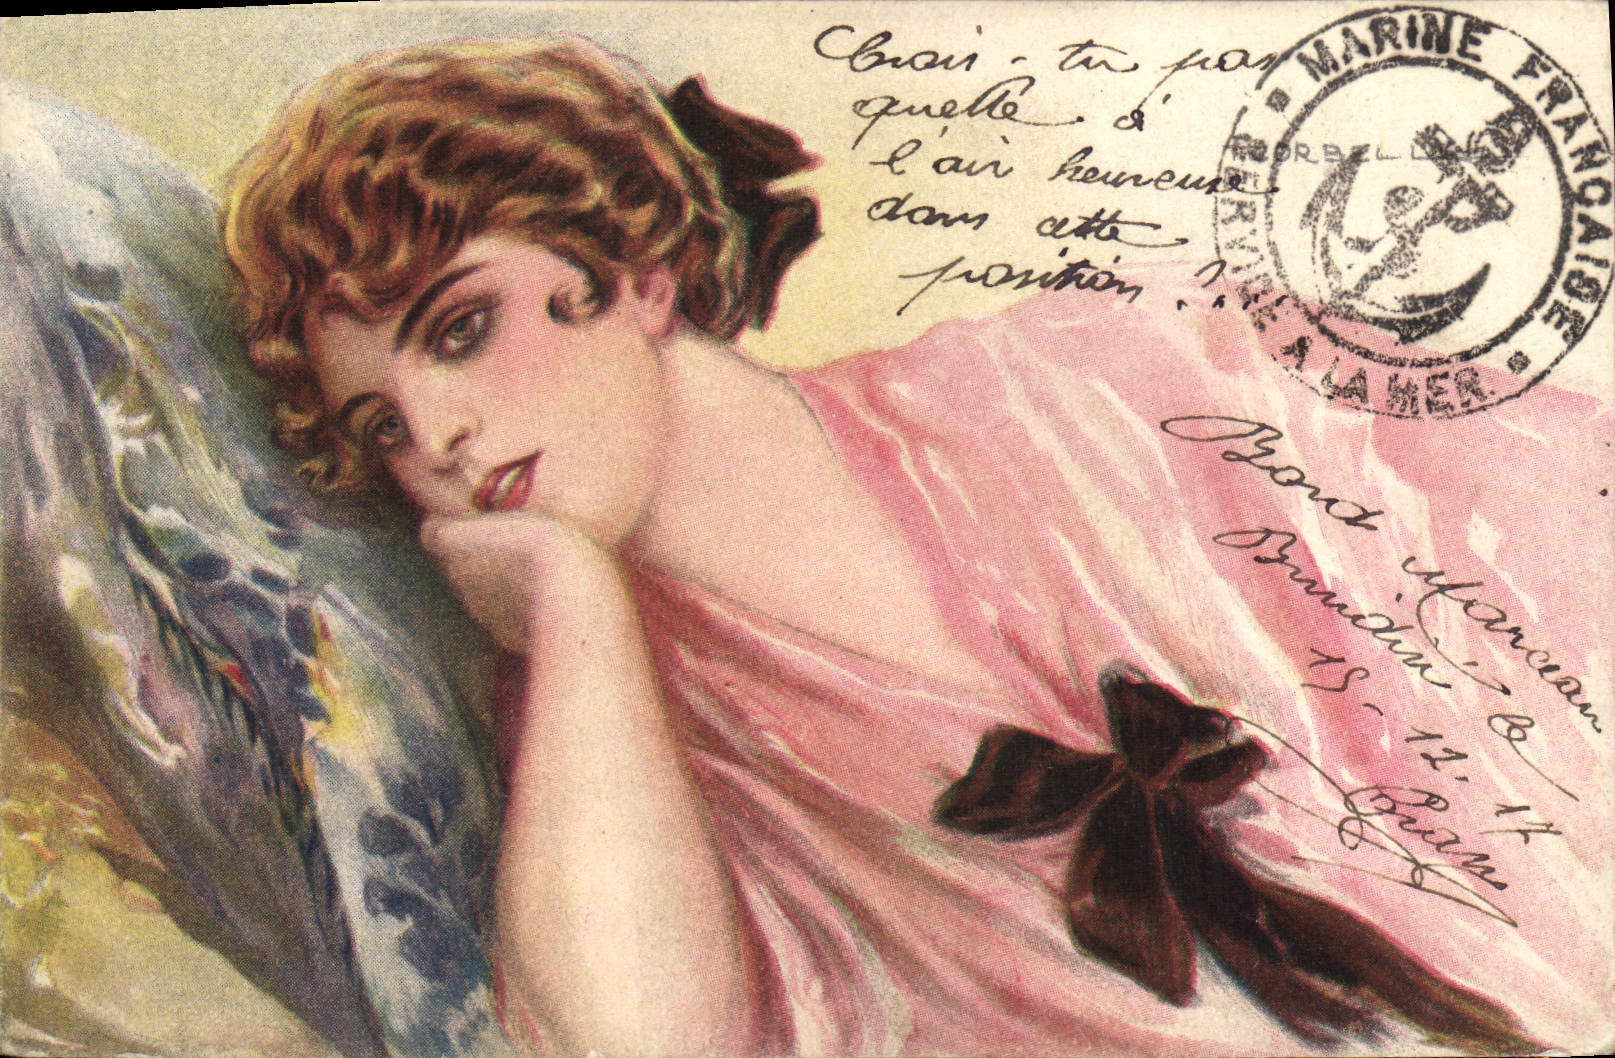 Crois-tu pas
quelle à
l'air heureuse
dans cette
position ?...
MARINE FRANÇAISE
SERVICE A LA MER
CORBELLA
Bord Marceau
Brindisi le
15-12-17